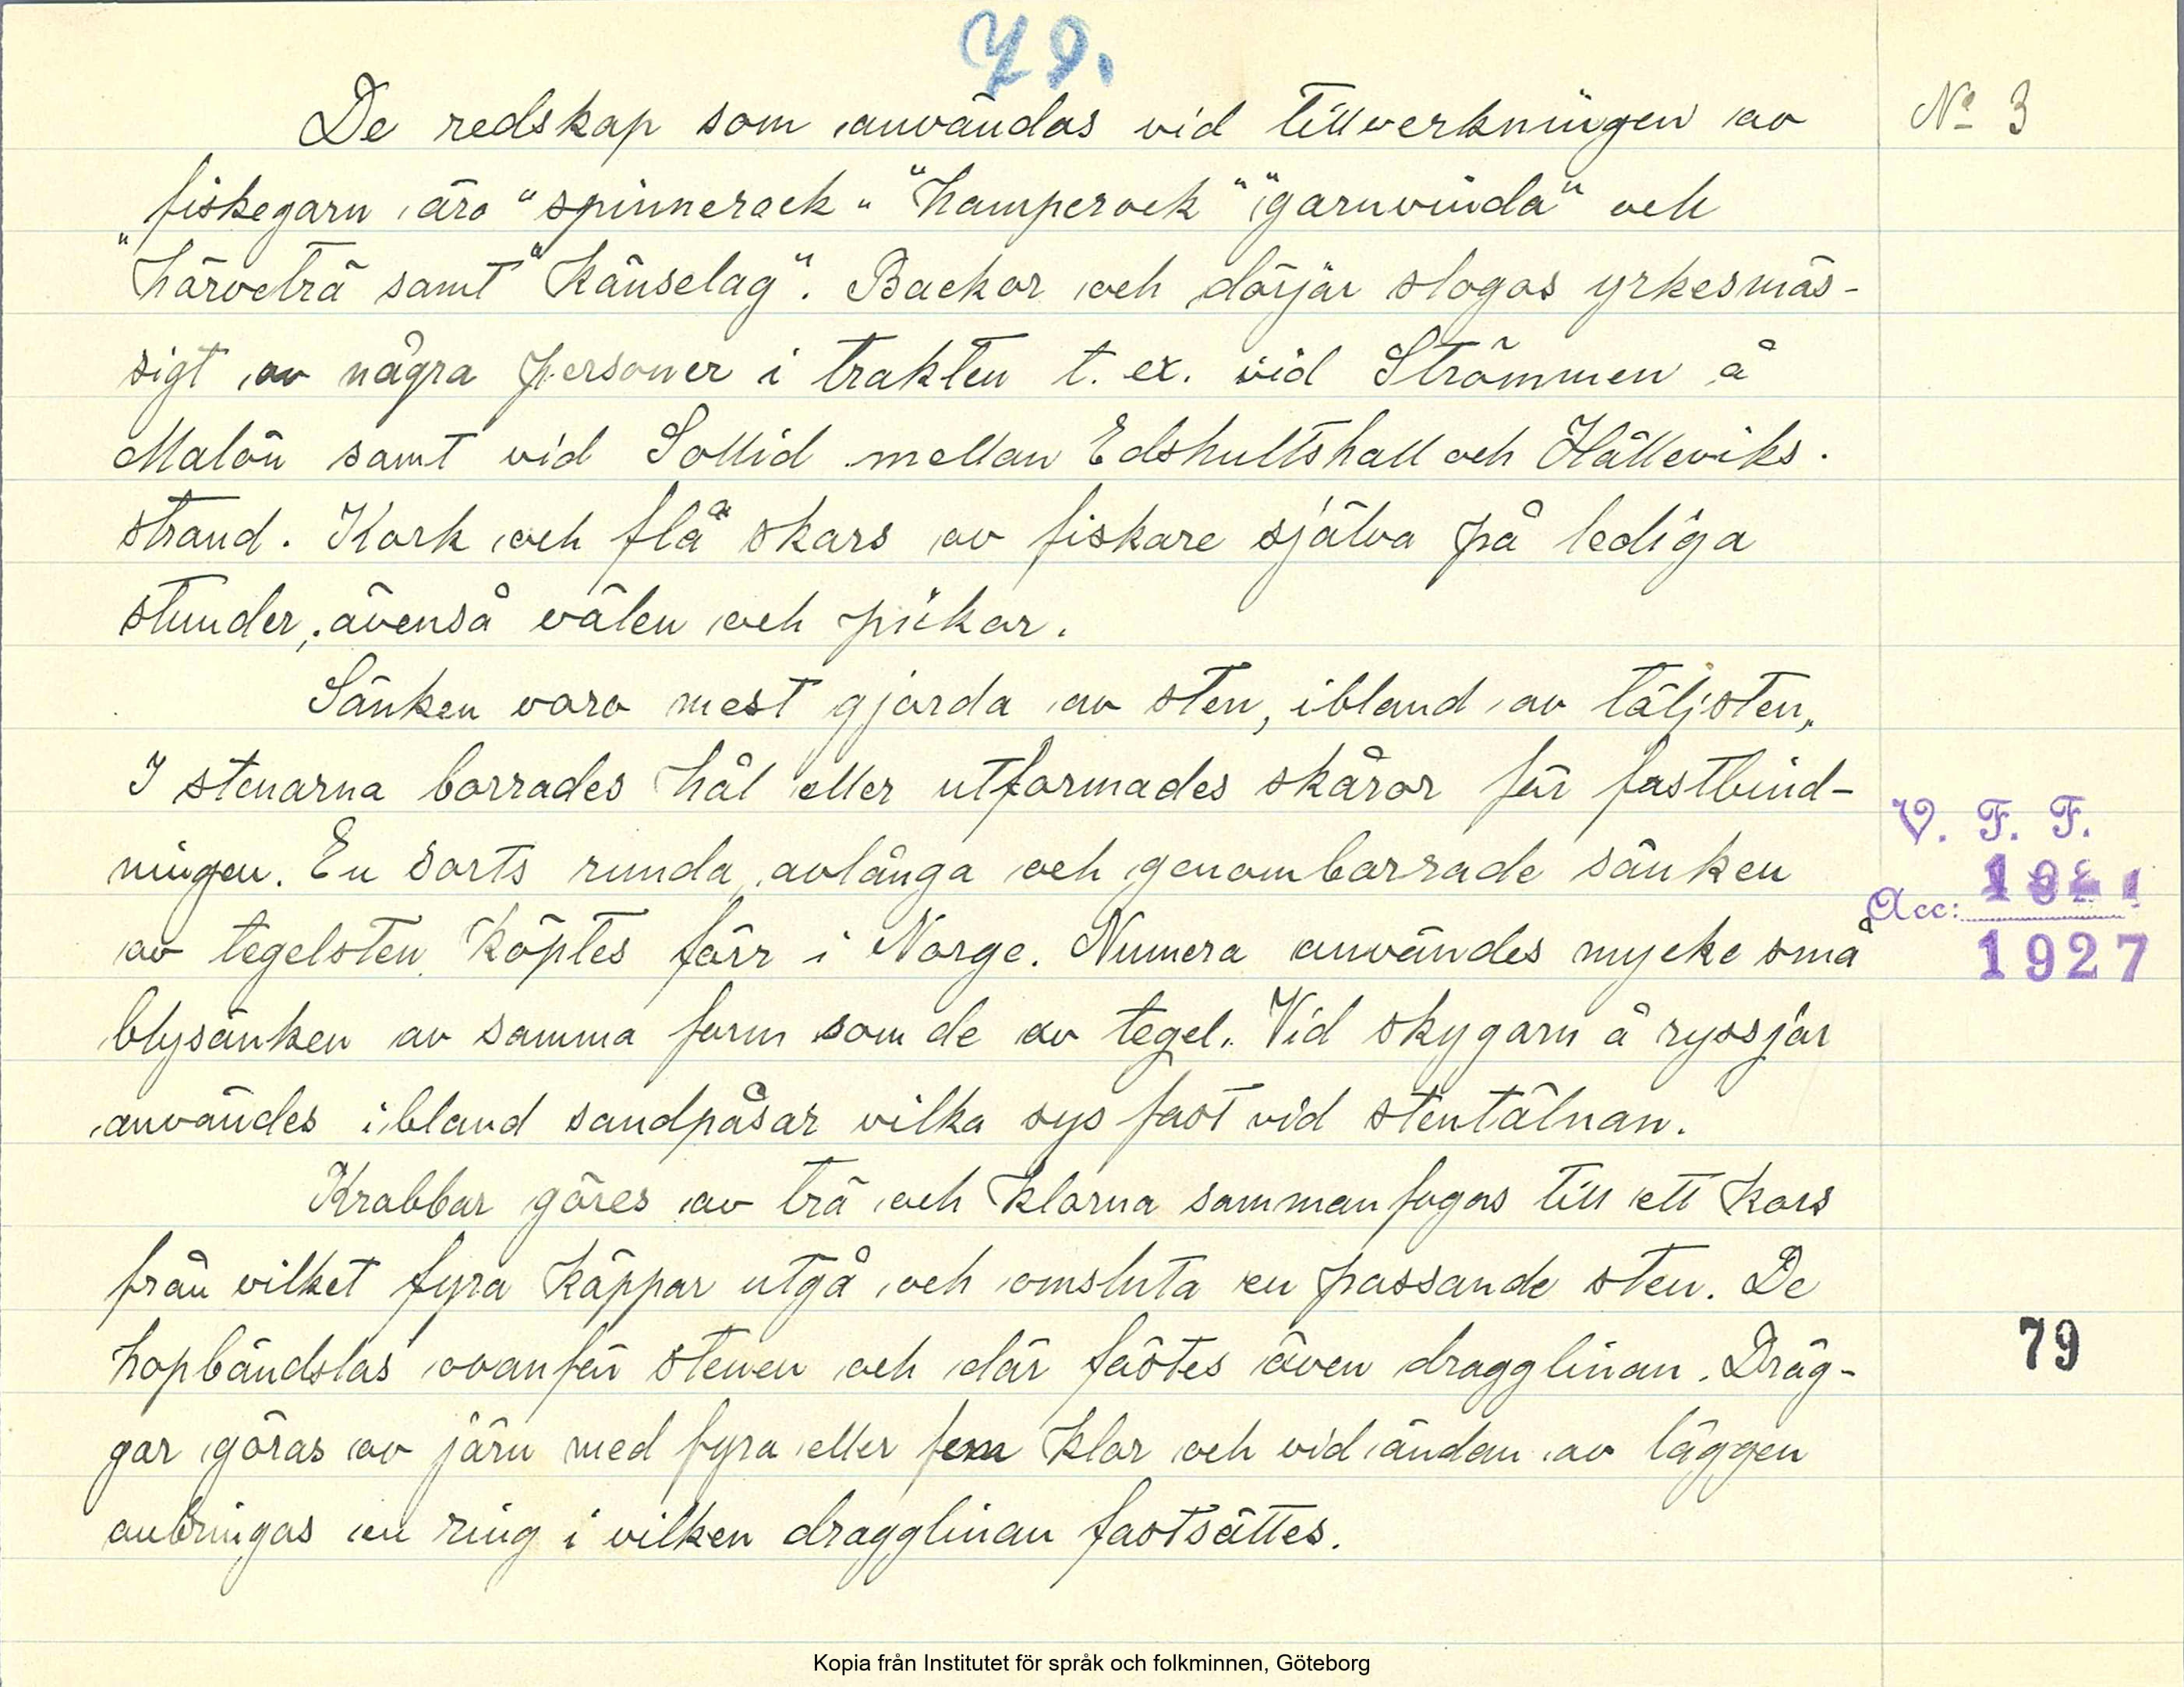 79.
De redskap som användas vid tillverkningen av
N° 3
fiskegarn äro "spinnerock" "hamperock" "garnvinda" och
"härveträ samt "känselag". Backor och dörjär slogos yrkesmäs-
sigt av några personer i trakten t. ex. vid Strömmen å
Malön samt vid Sollid mellan Edshultshall och Hälleviks-
strand. Kork och flå skars av fiskare själva på lediga
stunder, ävenså välen och pükar.
Sänken voro mest gjorda av sten, ibland av täljsten.
I stenarna borrades hål eller utformades skåror för fastbind-
ningen. En sorts runda, avlånga och genomborrade sänken
av tegelsten köptes förr i Norge. Numera användes mycke små
blysänken av samma form som de av tegel. Vid skygarn å ryssjor
användes ibland sandpåsar vilka sys fast vid stentälnan.
Krabbar göres av trä och klorna sammanfogas till ett kors
från vilket fyra käppar utgå och omsluta en passande sten. De
hopbändslas ovanför stenen och där fästes även dragglinan. Dräg-
gar göras av järn med fyra eller fem klor och vid ändan av läggen
anbringas en ring i vilken dragglinan fastsättes.
V. F. F.
Acc:
1927
79
Kopia från Institutet för språk och folkminnen, Göteborg